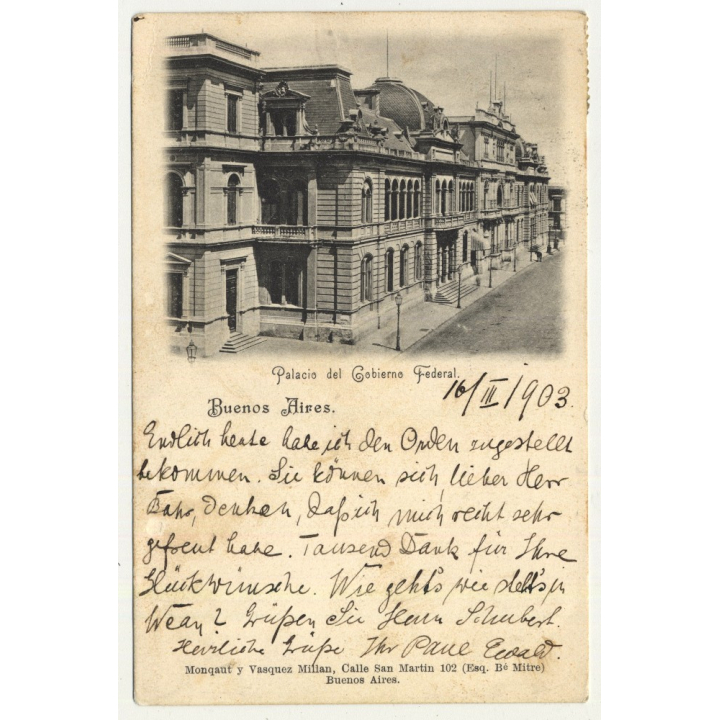 Palacio del Gobierno Federal.
16/III/1903.
Buenos Aires.
Endlich heute habe ich den Orden zugestellt
bekommen. Sie können sich, lieber Herr
Bahr, denken, daß ich mich recht sehr
gefreut habe. Tausend Dank für Ihre
Glückwünsche. Wie geht's, wie steht's in
Wean? Grüßen Sie Herrn Schubert.
Herzliche Grüße Ihr Paul Ewald.
Monqaut y Vasquez Millan, Calle San Martin 102 (Esq. Bé Mitre)
Buenos Aires.